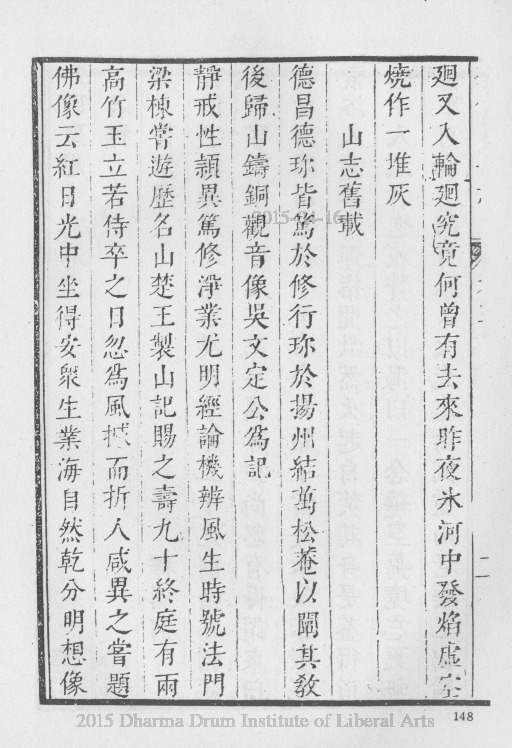 廻又入輪廻究竟何曾有去來昨夜氷河中發焰虛空
燒作一堆灰
山志舊載
德昌德珎皆篤於修行珎於揚州結萬松菴以闡其敎
後歸山鑄銅觀音像吳文定公爲記
靜戒性頴異篤修淨業尤明經論機辨風生時號法門
梁棟嘗遊歷名山楚王製山記賜之壽九十終庭有兩
高竹玉立若侍卒之日忽爲風摵而折人咸異之嘗題
佛像云紅日光中坐得安衆生業海自然乾分明想像
148
2015 Dharma Drum Institute of Liberal Arts